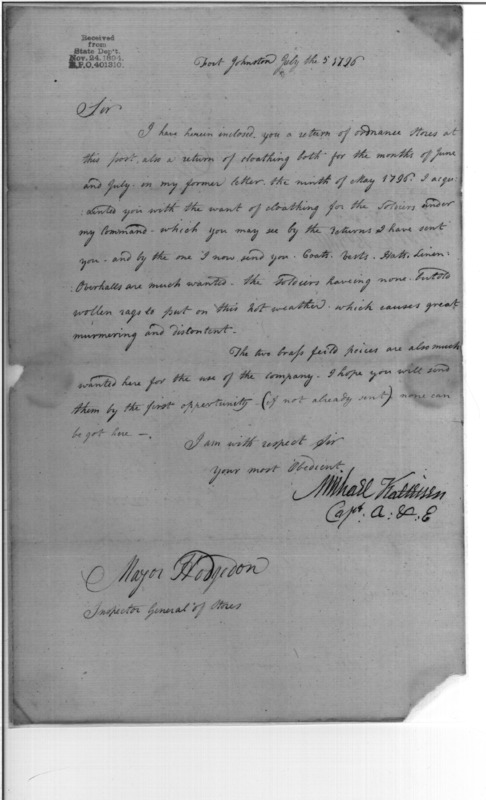 Received
from
State Dep't.
Nov. 24, 1894.
R.P.O. 401310.
Fort Johnston July the 5 1796
Sir
I have herein inclosed you a return of ordnance Stores at
this post. also a return of cloathing both for the months of June
and July. in my former letter. the ninth of May 1796. I acqu
ainted you with the want of cloathing for the Solciers under
my command. which you may see by the returns I have sent
you. and by the one I now send you. Coats. Vests. Hatts. Linen
Overhalls are much wanted. the Solciers haveing none. But old
wollen rags to put on this hot weather. which causes great
murmering and distontent.
The two brass feild peices are also much
wanted here for the use of the company. I hope you will send
them by the first opportunity (if not already sent) none can
be got here —.
I am with respect Sir
your most Obedient
Michael Kalteisen
Capt. A. & E
Mayor Hodgdon
Inspector General of Stores